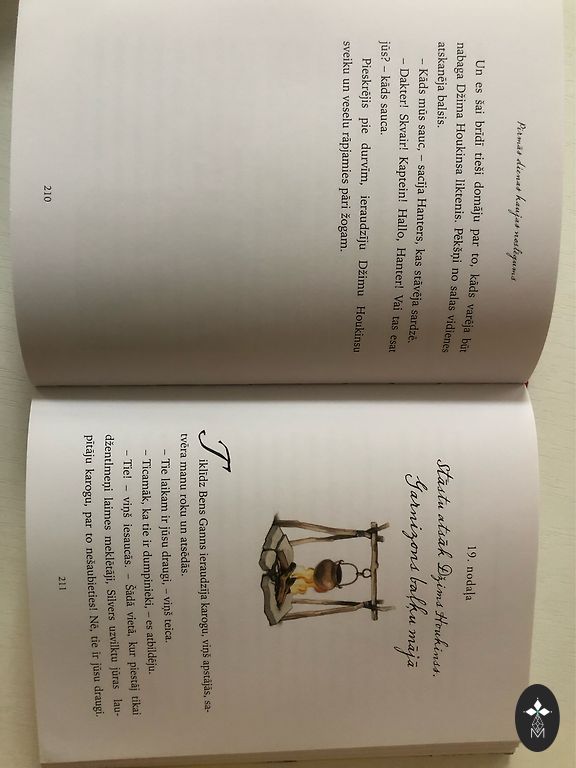 Pirmās dienas kaujas noslēgums
Un es šai brīdī tieši domāju par to, kāds varēja būt
nabaga Džima Houkinsa liktenis. Pēkšņi no salas vidienes
atskanēja balsis.
– Kāds mūs sauc, – sacīja Hanters, kas stāvēja sardzē.
– Dakter! Skvair! Kaptein! Hallo, Hanter! Vai tas esat
jūs? – kāds sauca.
Pieskrējis pie durvīm, ieraudzīju Džimu Houkinsu
sveiku un veselu rāpjamies pāri žogam.
210
19. nodaļa
Stāstu atsāk Džims Houkinss.
Garnizons baļķu mājā
Tiklīdz Bens Ganns ieraudzīja karogu, viņš apstājās, sa-
tvēra manu roku un atsēdās.
– Tie laikam ir jūsu draugi, – viņš teica.
– Ticamāk, ka tie ir dumpinieki, – es atbildēju.
– Tie! – viņš iesaucās. – Šādā vietā, kur piestāj tikai
džentlmeņi laimes meklētāji, Silvers uzvilktu jūras lau-
pītāju karogu, par to nešaubieties! Nē, tie ir jūsu draugi.
211
M